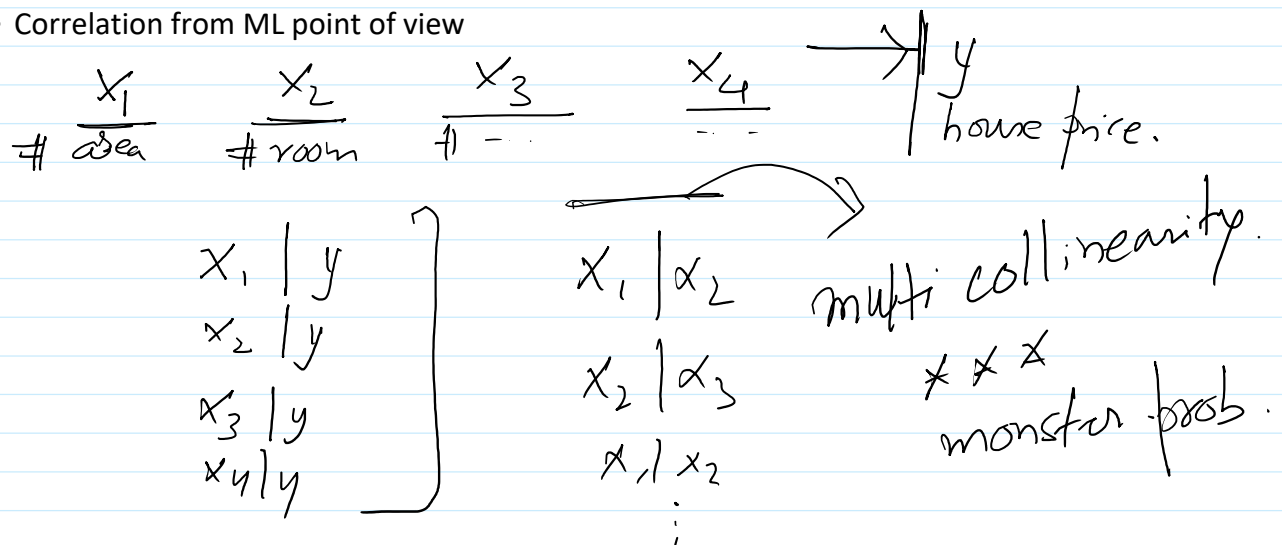 Correlation from ML point of view
X1 X2 X3 X4 → y
# area # room # -... - - - house price.
X1 | y
x2 | y
x3 | y
x4 | y
X1 | x2
X2 | x3
x1 | x2
multi collinearity.
* * *
monster prob.